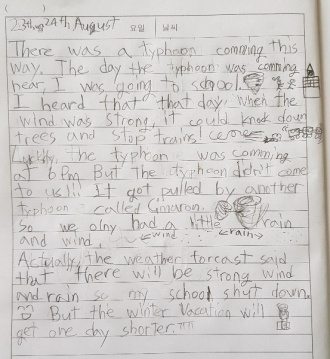 ( )
23th~24th August 요일 날씨
There was a typhoon comming this
way. The day the typhoon was comming
near, I was going to school.
I heard that that day, when the
wind was strong, it could knock down
trees and stop trains!
Luckily, the typhoon was comming
at 6pm. But the typhoon didn't come
to us!!! It got pulled by another
typhoon called Cimaron.
So we olny had a little rain
and wind. ←wind→ ←rain→
Actually, the weather forcast said
that there will be strong wind
and rain so my school shut down.
But the winter vacation will
get one day shorter.